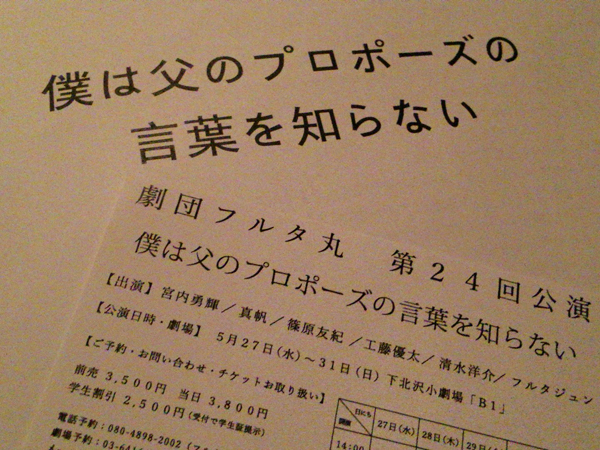 僕は父のプロポーズの
言葉を知らない
劇団フルタ丸 第24回公演
僕は父のプロポーズの言葉を知らない
【出演】宮内勇輝／真帆／篠原友紀／工藤優太／清水洋介／フルタジュン
【公演日時・劇場】 5月27日(水)～31日(日) 下北沢小劇場「B1」
【ご予約・お問い合わせ・チケットお取り扱い】
前売 3,500円 当日 3,800円
学生割引 2,500円(受付で学生証提示)
電話予約：080-4898-2002
劇場予約：03-641
27日(水) 28日(木) 29日
14:00